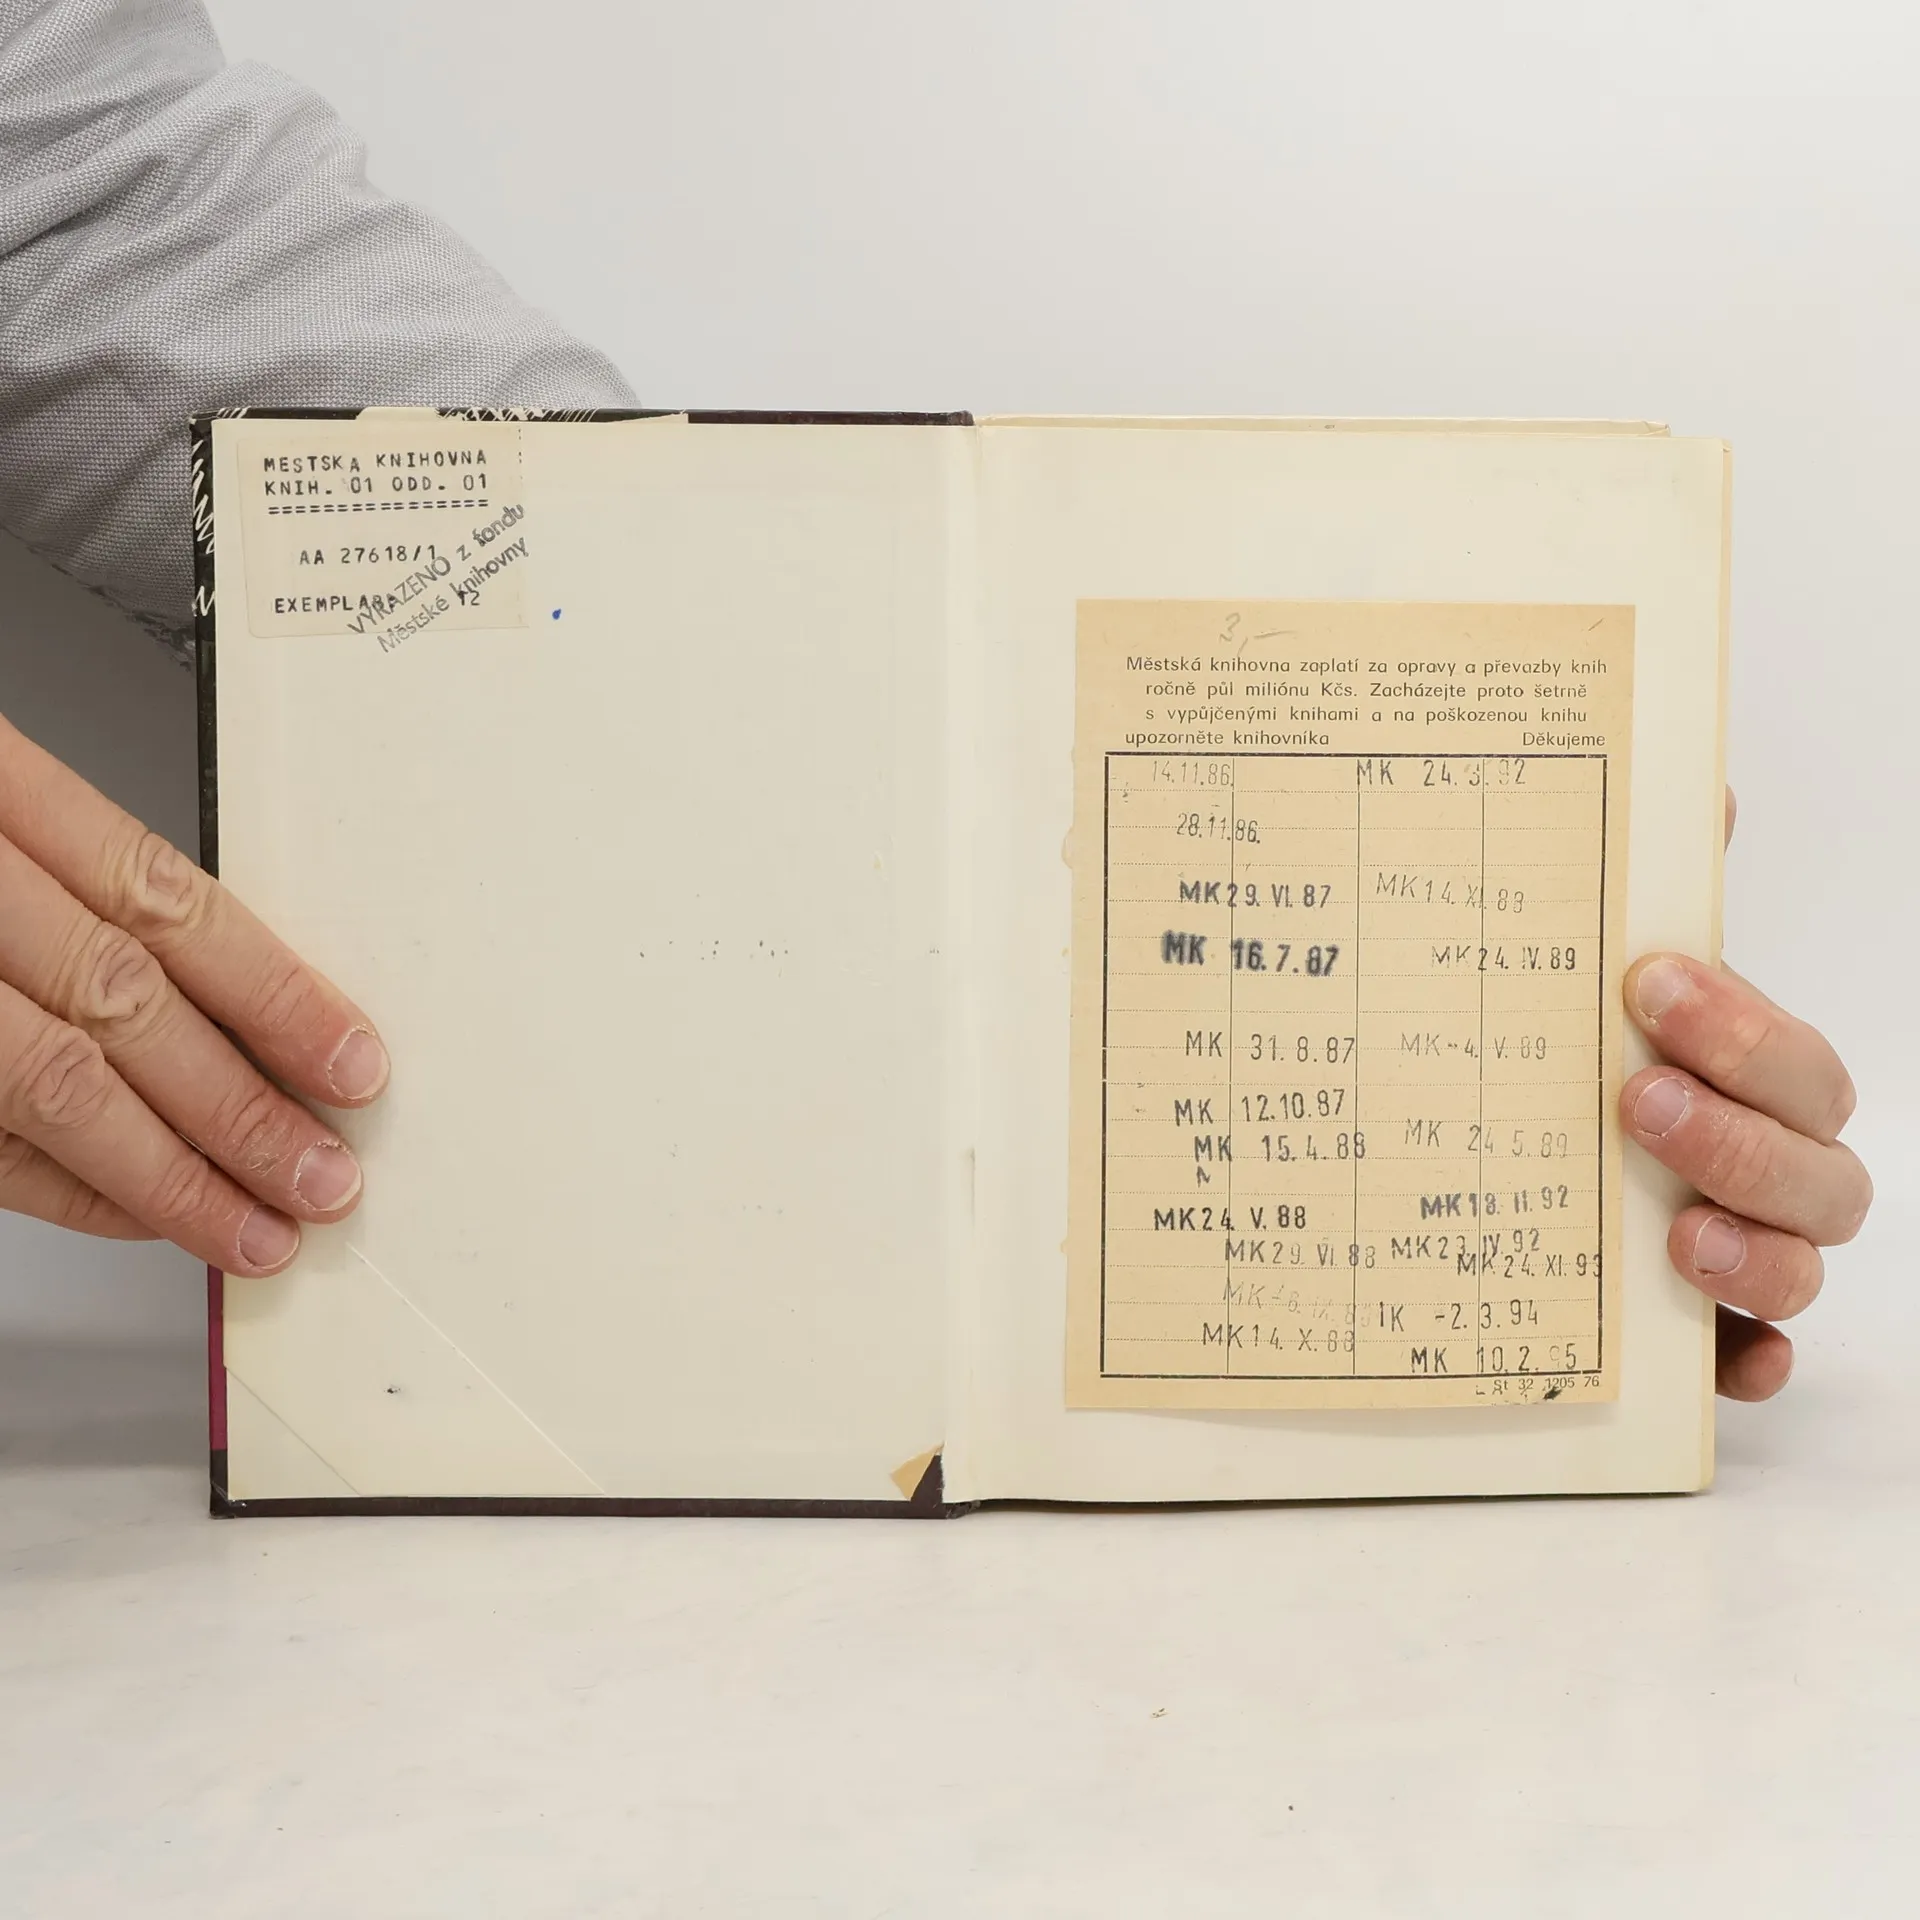 MESTSKA KNIHOVNA
KNIH. 01 ODD. 01
================
AA 27618/1
EXEMPLAR: 12
VYŘAZENO z fondu
Městské knihovny
3,-
Městská knihovna zaplatí za opravy a převazby knih
ročně půl miliónu Kčs. Zacházejte proto šetrně
s vypůjčenými knihami a na poškozenou knihu
upozorněte knihovníka Děkujeme
14.11.86.
28.11.86.
MK 29. VI. 87
MK 16. 7. 87
MK 31. 8. 87
MK 12.10.87
MK 15. 4. 88
MK 24. V. 88
MK 29. VI. 88
MK -6.
MK 14. X. 88
MK 24. 3. 92
MK 14. XI. 88
MK 24. IV. 89
MK -4. V. 89
MK 24 5. 89
MK 18. II. 92
MK 23. IV. 92
MK 24. XI. 93
IK -2. 3. 94
MK 10. 2. 95
St 32 1205 76